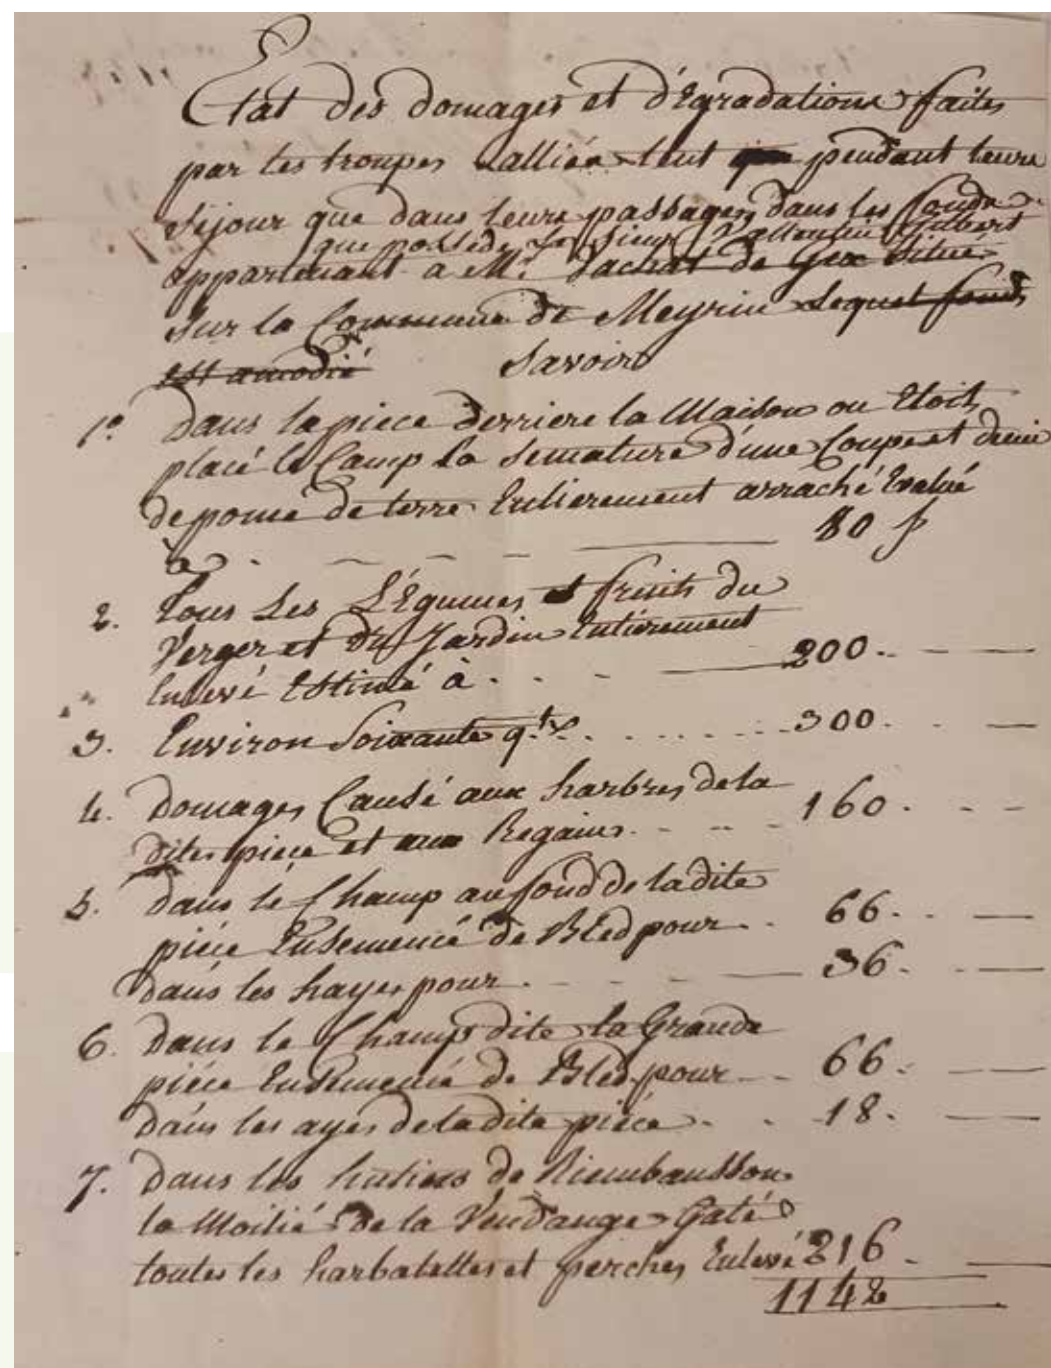 Etat des domages et d'Egradations faites
par les troupes alliée tent pendant leurs
Séjour que dans leurs passages, dans les fonds
que possède le Sieur Gilbert
appartenant a Mr. Dachat de Gex Situé
Sur la Commune de Meyrin Lequel fond
est amodié Savoir
1º Dans la piece derriere la Maison ou Etoit
placé le Camp la Semature d'une Coupe et demie
de pome de terre Entierement arraché Evalué
à . - - - 80 f
2. Tous Les L'Égumes et fruits du
Verger et du Jardin Entierement
Enlevé Estimé à . . - 200. - -
3. Environ Soixante q.tx . . . . . . . 300. -
4. Domages Causé aux harbres de la
dites piece et aux Regains. - - - 160. - -
5. Dans le Champ au fond de la dite
piéce Ensemencé de Bled pour . . 66. . -
Dans les hayes pour . - - - 36. . -
6. Dans le Champ dite la Grande
piéce Ensemencé de Bled pour - . 66. -
Dans les ayes de la dite piéce . . 18. -
7. Dans les hutins de
la Moitié de la Vendange Gaté
toutes les harbatelles et perches Enlevé 216. -
1142